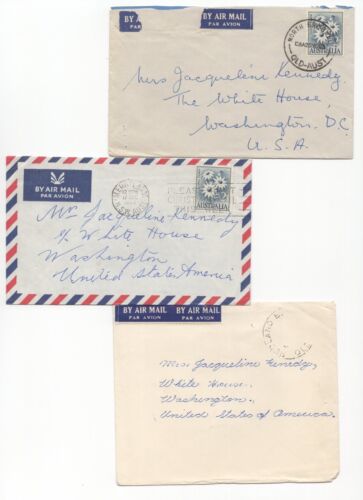 BY AIR MAIL
PAR AVION
BY AIR MAIL
PAR AVION
NORTH
QLD-AUST
AUSTRALIA
Mrs Jacqueline Kennedy,
The White House,
Washington, D.C.
U.S.A.
BY AIR MAIL
PAR AVION
AUSTRALIA
Mrs Jacqueline Kennedy
c/o White House
Washington
United States America
BY AIR MAIL
PAR AVION
BY AIR MAIL
PAR AVION
QLD
Mrs. Jacqueline Kenedy,
White House,
Washington,
United States of America.